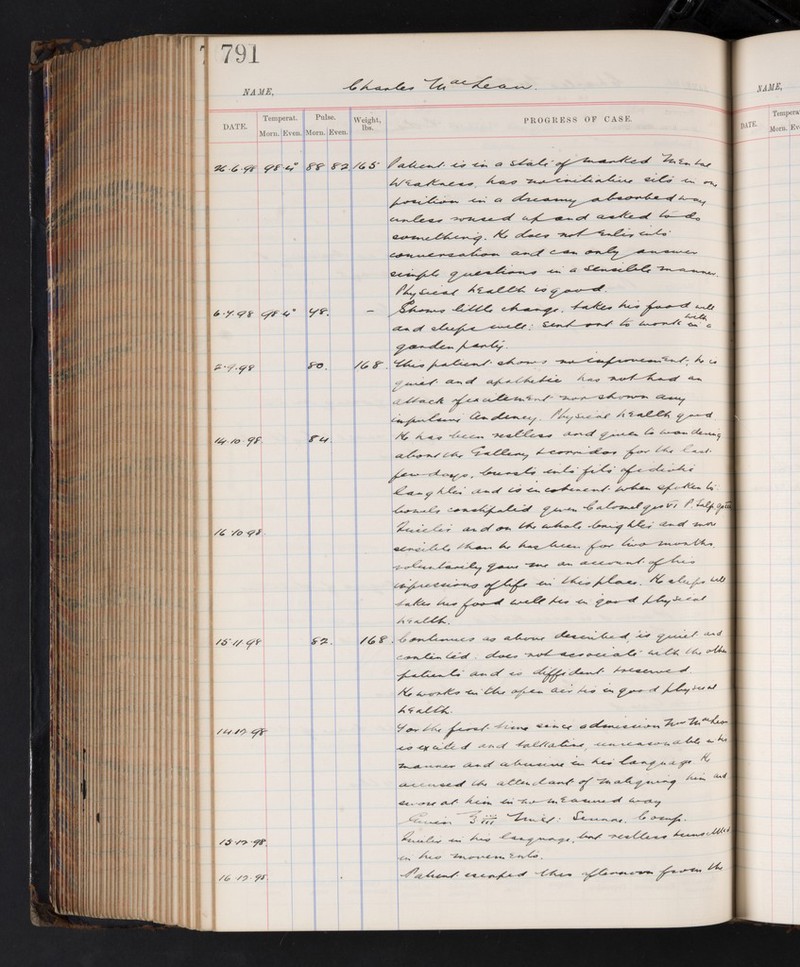 791
NAME, Charles MacLean
DATE. Temperat. Pulse. Weight, lbs. PROGRESS OF CASE.
Morn. Even. Morn. Even.
26.6.98 98.4° 88 82 165 Patient is in a state of marked mental
weakness, has no initiative sits in one
position in a dreamy absorbed way
unless roused up and asked to do
something. He does not enter into
conversation and can only answer
simple questions in a sensible manner.
Physical health is good.
6.7.98 98.4° 78. – Shows little change, takes his food well
and sleeps well: sent out to work with
in a
garden party.
2.9.98 80. 168. This patient shows no improvement; he is
quiet and apathetic has not had an
attack of excitement nor shown any
impulsive tendency. Physical health good
14.10.98 84 He has been restless and given to wandering
about the Gallery & corridor for the last
few days, bursts into fits of idiotic
laughter and is incoherent when spoken to
bowels constipated given Calomel grs VI
16.10.98 Quieter and on the whole brighter and more
sensible than he has been for two months,
voluntarily gave me an account of his
impressions of life in this place. He sleeps well
takes his food well & is in good physical
health.
15.11.98 82. 168. Continues as above described, is quiet and
contented. does not associate with the other
patients and is diffident & reserved.
He works in the open air & is in good physical
health.
14.12.98 For the first time since admission MacLean
is excited and talkative, unreasonable in his
manner and abusive in his language. He
accused the attendant of maligning him and
swore at him in no measured way
Given Mist: Sennae. Comp.
15.12.98. Quieter in his language, but restless & unsettled
in his movements.
16.12.98. Patient escaped this afternoon from the
NAME,
DATE. Tempera
Morn. Ev